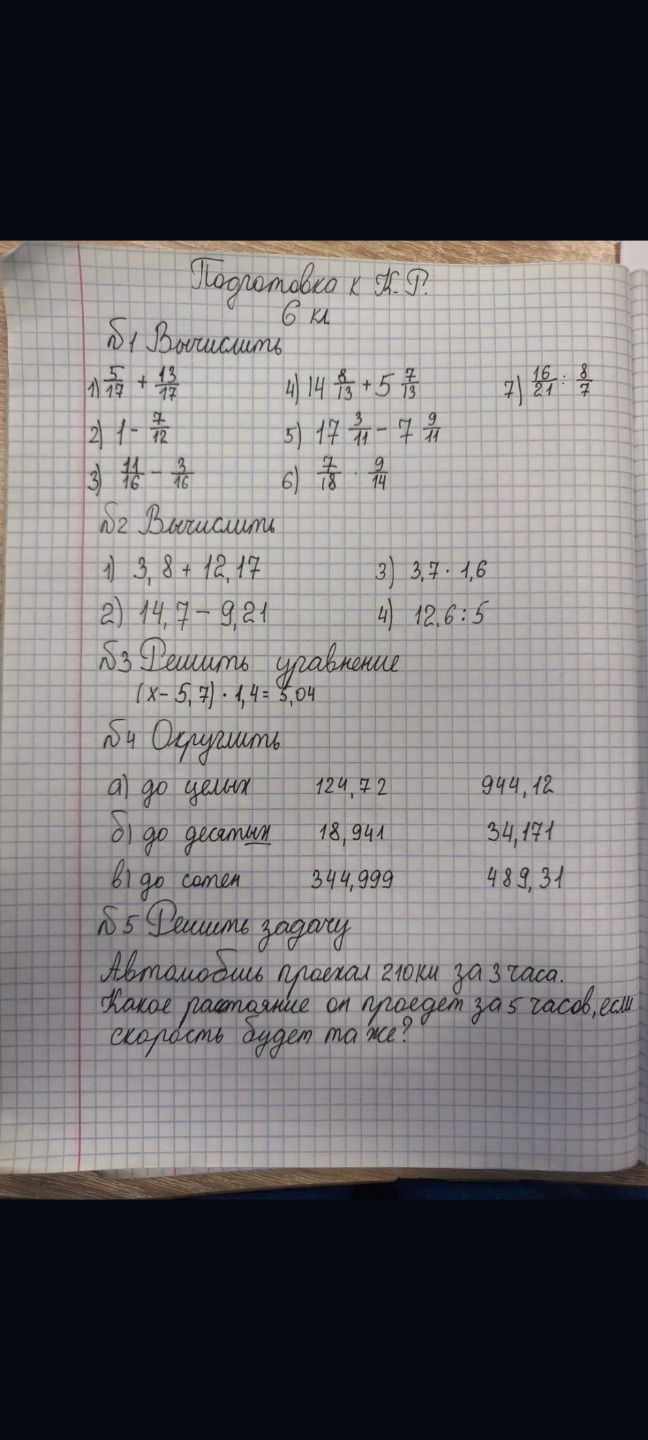 Подготовка к К.Р.
6 кл
№1 Вычислить
1) 5/17 + 13/17 4) 14 8/13 + 5 7/13 7) 16/21 : 8/7
2) 1 - 7/12 5) 17 3/11 - 7 9/11
3) 11/16 - 3/16 6) 7/18 · 9/14
№2 Вычислить
1) 3,8 + 12,17 3) 3,7 · 1,6
2) 14,7 - 9,21 4) 12,6 : 5
№3 Решить уравнение
(x - 5,7) · 1,4 = 5,04
№4 Округлить
а) до целых 124,72 944,12
б) до десятых 18,941 34,171
в) до сотен 344,999 489,31
№5 Решить задачу
Автомобиль проехал 210км за 3 часа.
Какое расстояние он проедет за 5 часов, если
скорость будет та же?